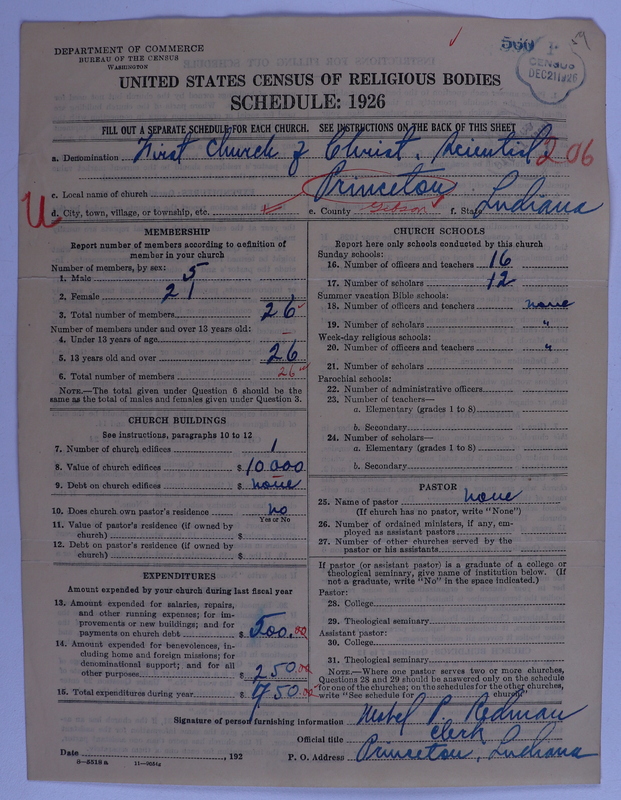 DEPARTMENT OF COMMERCE
BUREAU OF THE CENSUS
WASHINGTON
560 1
CENSUS
DEC 21 1926
UNITED STATES CENSUS OF RELIGIOUS BODIES
SCHEDULE: 1926
FILL OUT A SEPARATE SCHEDULE FOR EACH CHURCH. SEE INSTRUCTIONS ON THE BACK OF THIS SHEET
a. Denomination First Church of Christ, Scientist 206
c. Local name of church Princeton
U d. City, town, village, or township, etc. e. County Gibson f. State Indiana
MEMBERSHIP
Report number of members according to definition of
member in your church
Number of members, by sex:
1. Male 5
2. Female 21
3. Total number of members 26
Number of members under and over 13 years old:
4. Under 13 years of age —
5. 13 years old and over 26
6. Total number of members 26
NOTE.—The total given under Question 6 should be the
same as the total of males and females given under Question 3.
CHURCH BUILDINGS
See instructions, paragraphs 10 to 12
7. Number of church edifices 1
8. Value of church edifices $ 10 000
9. Debt on church edifices $ none
10. Does church own pastor's residence no
Yes or No
11. Value of pastor's residence (if owned by
church) $
12. Debt on pastor's residence (if owned by
church) $
EXPENDITURES
Amount expended by your church during last fiscal year
13. Amount expended for salaries, repairs,
and other running expenses; for im-
provements or new buildings; and for
payments on church debt $ 500.00
14. Amount expended for benevolences, in-
cluding home and foreign missions; for
denominational support; and for all
other purposes $ 250.00
15. Total expenditures during year $ 750.00
CHURCH SCHOOLS
Report here only schools conducted by this church
Sunday schools:
16. Number of officers and teachers 16
17. Number of scholars 12
Summer vacation Bible schools:
18. Number of officers and teachers none
19. Number of scholars "
Week-day religious schools:
20. Number of officers and teachers "
21. Number of scholars
Parochial schools:
22. Number of administrative officers
23. Number of teachers—
a. Elementary (grades 1 to 8)
b. Secondary
24. Number of scholars—
a. Elementary (grades 1 to 8)
b. Secondary
PASTOR
25. Name of pastor none
(If church has no pastor, write "None")
26. Number of ordained ministers, if any, em-
ployed as assistant pastors
27. Number of other churches served by the
pastor or his assistants
If pastor (or assistant pastor) is a graduate of a college or
theological seminary, give name of institution below. (If
not a graduate, write "No" in the space indicated.)
Pastor:
28. College
29. Theological seminary
Assistant pastor:
30. College
31. Theological seminary
NOTE.—Where one pastor serves two or more churches,
Questions 28 and 29 should be answered only on the schedule
for one of the churches; on the schedules for the other churches,
write "See schedule for church."
Signature of person furnishing information Mabel P. Redman
Official title Clerk
Date , 192 P. O. Address Princeton, Indiana
8—5518 a